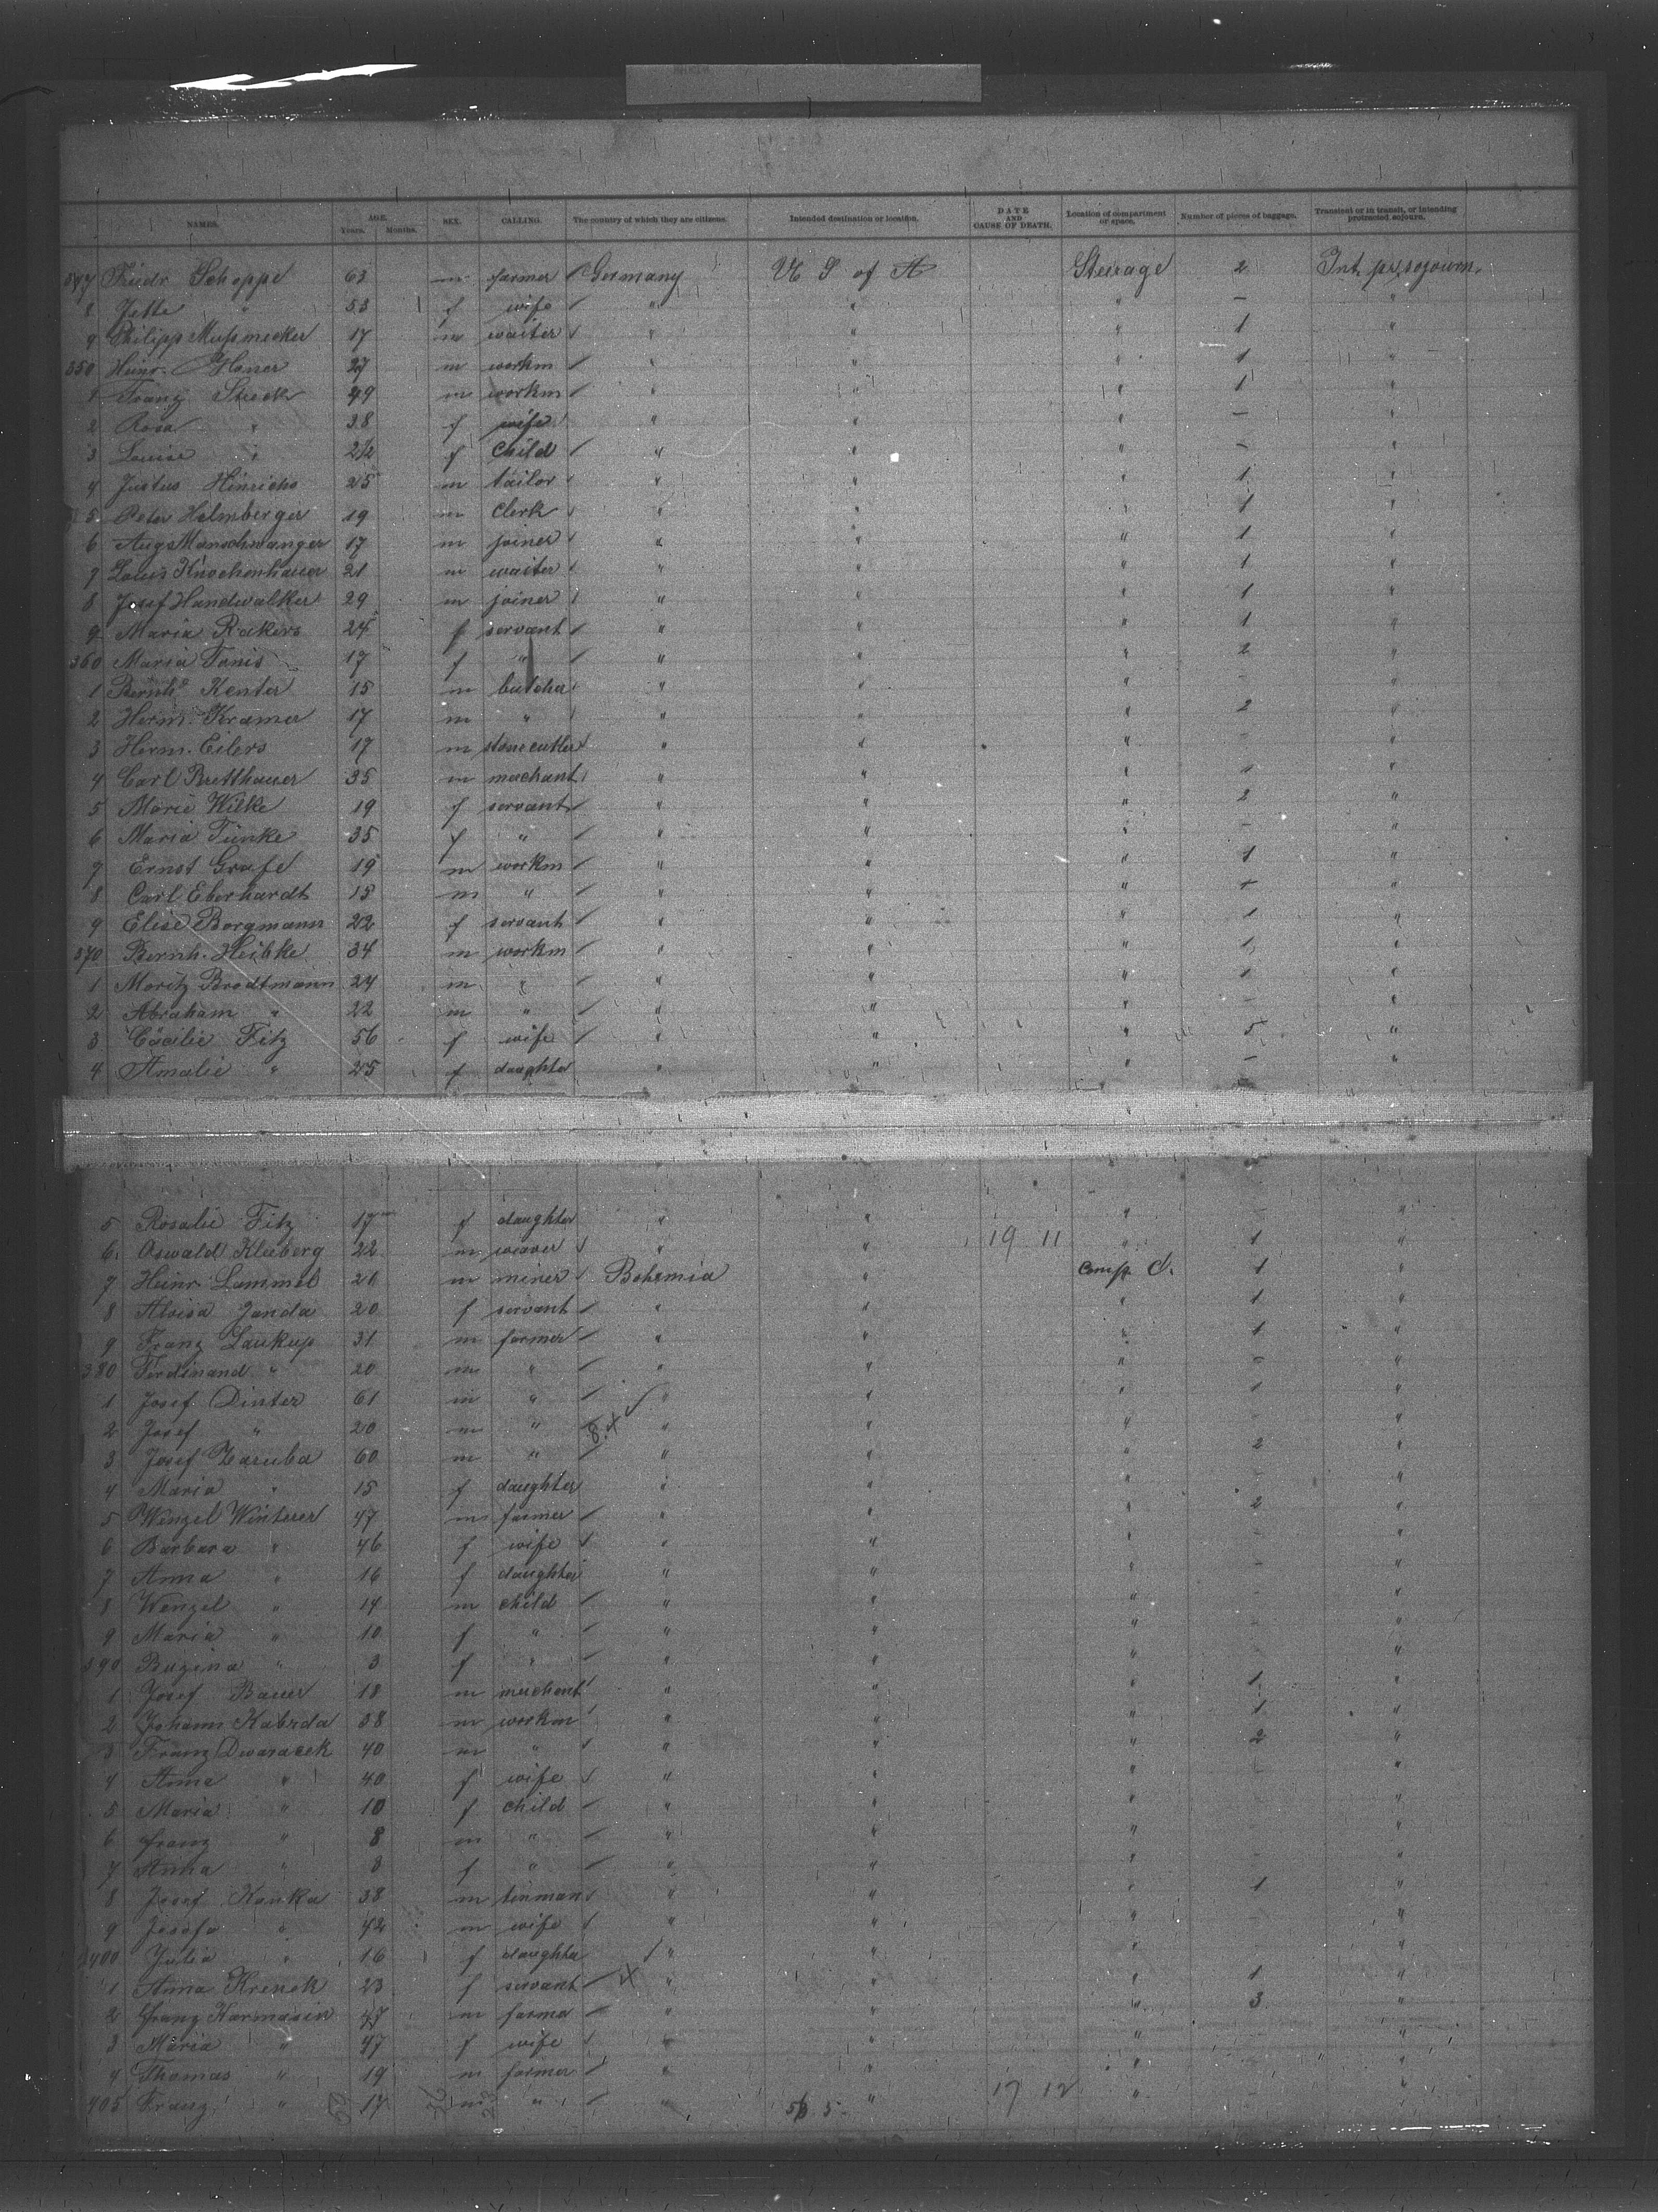 NAMES. AGE. Years. Months. SEX. CALLING. The country of which they are citizens. Intended destination or location. DATE AND CAUSE OF DEATH. Location of compartment or space. Number of pieces of baggage. Transient or in transit, or intending protracted sojourn.
347 Friedr Schoppe 63 m farmer Germany U S of A Steerage 2 Int. pr. sojourn.
8 Jette " 53 f wife " " " - "
9 Philipp 17 m waiter " " " 1 "
350 Heinr. 27 m workm " " " 1 "
1 Franz Streck 49 m workm " " " 1 "
2 Rosa " 38 f wife " " " - "
3 Louise " 2½ f child " " " - "
4 Justus Hinrichs 25 m tailor " " " 1 "
5 Peter Helmberger 19 m clerk " " " 1 "
6 Aug. Manschwanger 17 m joiner " " " 1 "
7 Louis Knochenhauer 21 m waiter " " " 1 "
8 Josef Handwalker 29 m joiner " " " 1 "
9 Maria Rakers 24 f servant " " " 1 "
360 Maria Tonis 17 f " " " " 2 "
1 Bernhd Kenter 15 m butcher " " " - "
2 Herm. Kramer 17 m " " " " 2 "
3 Herm. Eilers 17 m stonecutter " " " - "
4 Carl Bretthauer 35 m merchant " " " 1 "
5 Marie Wilke 19 f servant " " " 2 "
6 Maria Funke 35 f " " " " - "
7 Ernst Grafe 19 m workm " " " 1 "
8 Carl Eberhardt 15 m " " " " "
9 Elise Borgmann 22 f servant " " " 1 "
370 Bernh. Heibke 34 m workm " " " 1 "
1 Moritz Brodtmann 24 m " " " " 1 "
2 Abraham " 22 m " " " " - "
3 Cäcilie Fitz 56 f wife " " " 5 "
4 Amalie " 25 f daughter " " " - "
5 Rosalie Fitz 17 f daughter " " " - "
6. Oswald Kleeberg 22 m weaver " " 19 11 " 1 "
7 Heinr. Lammel 20 m miner Bohemia " Comp. C. 1 "
8 Aloisa Janda 20 f servant " " " 1 "
9 Franz Laukup 31 m farmer " " " 1 "
380 Ferdinand " 20 m " " " " - "
1 Josef Dinter 61 m " " " " 1 "
2 Josef " 20 m " " " " - "
3 Josef Zaruba 60 m " " " " 2 "
4 Maria " 15 f daughter " " " - "
5 Wenzel Winterer 47 m farmer " " " 2 "
6 Barbara " 46 f wife " " " - "
7 Anna " 16 f daughter " " " - "
8 Wenzel " 14 m child " " " - "
9 Maria " 10 f " " " " - "
390 " 3 f " " " " - "
1 Josef Bauer 18 m merchant " " " 1 "
2 Johann Kabrda 38 m workm " " " 1 "
3 Franz Dwaracek 40 m " " " " 2 "
4 Anna " 40 f wife " " " - "
5 Maria " 10 f child " " " - "
6 Franz " 8 m " " " " - "
7 Anna " 3 f " " " " - "
8 Josef Kanka 38 m tinman " " " 1 "
9 Josefa " 42 m wife " " " - "
400 Julia " 16 f daughter " " " - "
1 Anna Krenek 23 f servant " " " 1 "
2 Franz Karmasin 47 m farmer " " " 3 "
3 Maria " 47 f wife " " " - "
4 Thomas " 19 m farmer " " " - "
405 Franz " 17 m " " " 17 12 " - "